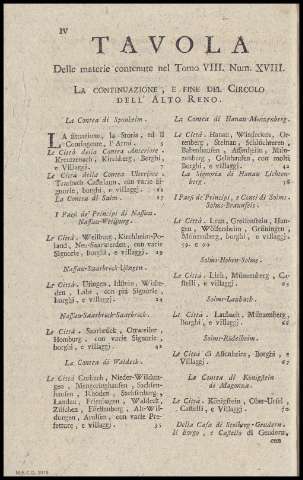 IV
TAVOLA
Delle materie contenute nel Tomo VIII. Num. XVIII.
LA CONTINUAZIONE, E FINE DEL CIRCOLO
DELL' ALTO RENO.
La Contea di Sponheim.
LA Situazione, la Storia, ed il
Contingente, l'Armi. 5
Le Città della Contea Anteriore.
Kreutzenach, Kirchberg, Borghi,
e Villaggi.
Le Città della Contea Ulteriore.
Trarbach Castelaun, con varie Signorie, borghi, e villaggi.
La Contea di Salm. 17
I Paesi de' Principi di Nassau-
Nassau-Weilburg.
Le Città. Weilburg, Kirchheim-Poland, Neu-Saarwerden, con varie
Signorie, borghi, e villaggi. 29
Nassau-Saarbruck-Usingen.
Le Città. Usingen, Idstein, Wisbaden, Lahr, con più Signorie,
borghi, e villaggi.
Nassau-Saarbruck-Saarbruck.
Le Città. Saarbruck, Ottweiler,
Homburg, con varie Signorie,
borghi, e villaggi. 42
La Contea di Waldeck.
Le Città Corbach, Nieder-Wildungen, Mengeringhausen, Sachsenhausen, Rhoden, Sachsenberg,
Landau, Freienhagen, Waldeck,
Züschen, Fürstenberg, Alt-Wildungen, Arolsen, con varie Prefetture, e villaggi. 35
La Contea di Hanau-Munzenberg.
Le Città. Hanau, Windecken, Ortenberg, Steinau, Schluchteren,
Babenhausen, Assenheim, Munzenberg, Gelnhausen, con molti
Borghi, e villaggi. 42
La Signoria di Hanau Lichtenberg. 58
I Paesi de' Principi, e Conti di Solms.
Solms-Braunfels.
Le Città. Leun, Greifenstein, Hungen, Wölfersheim, Grüningen,
Münzenberg, borghi, e villaggi.
59. e 60
Solms-Hohen-Solms.
Le Città. Lich, Münzenberg, Castelli, e villaggi. 65
Solms-Laubach.
Le Città. Laubach, Münzenberg,
borghi, e villaggi. 66
Solms-Rudelheim.
Le Città di Assenheim, Borghi, e
Villaggi. 67
La Contea di Königstein
di Magonza.
Le Città. Königstein, Ober-Ursel,
Castelli, e Villaggi. 70
Della Casa di Stolberg-Geudern.
Il Borgo, e Castello di Geudern,
con